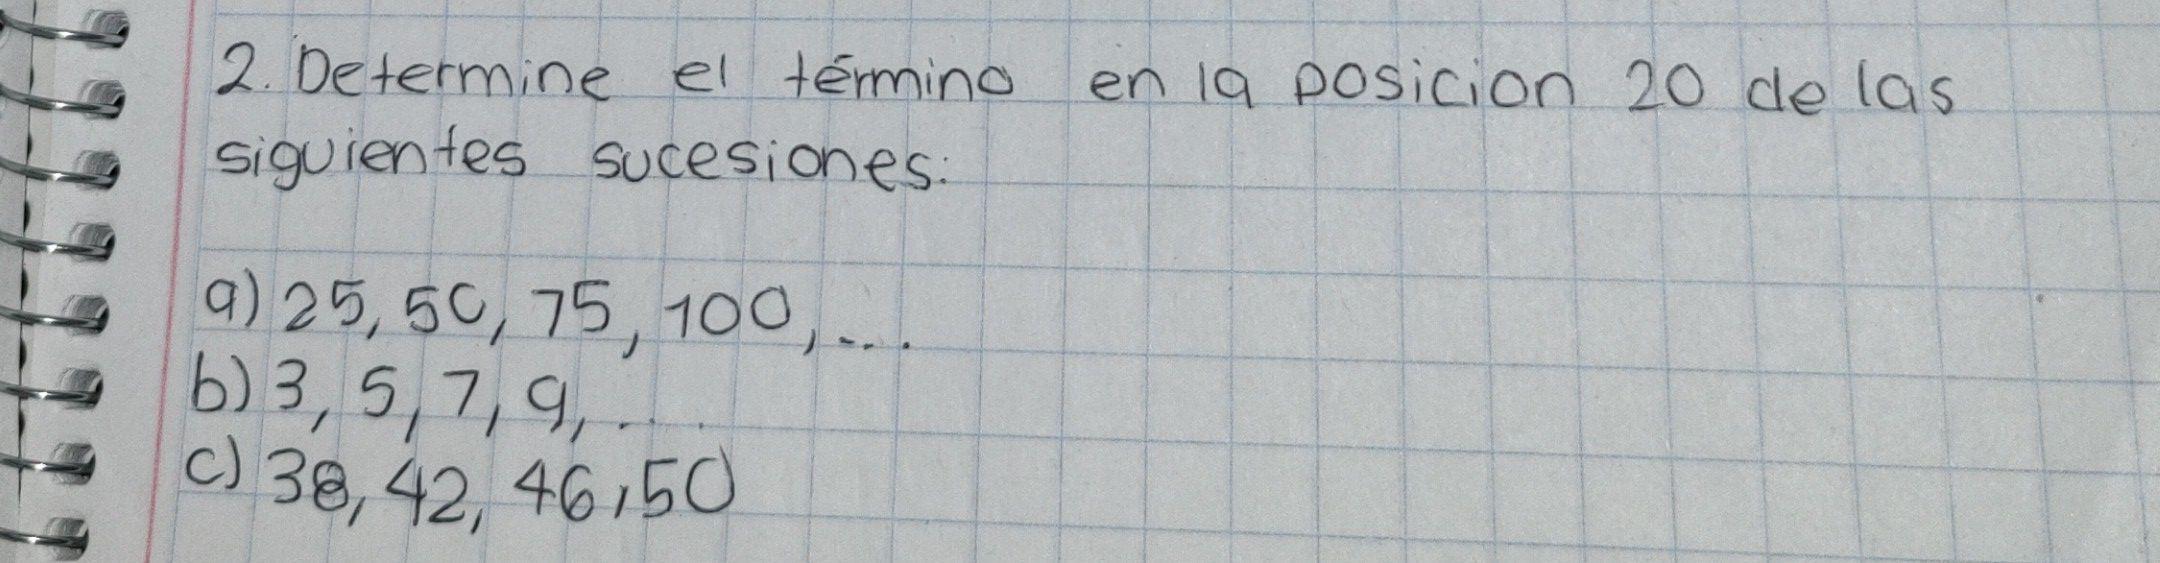 2. Determine el término en la posicion 20 de las
siguientes sucesiones:
a) 25, 50, 75, 100, ...
b) 3, 5, 7, 9, ....
c) 38, 42, 46, 50